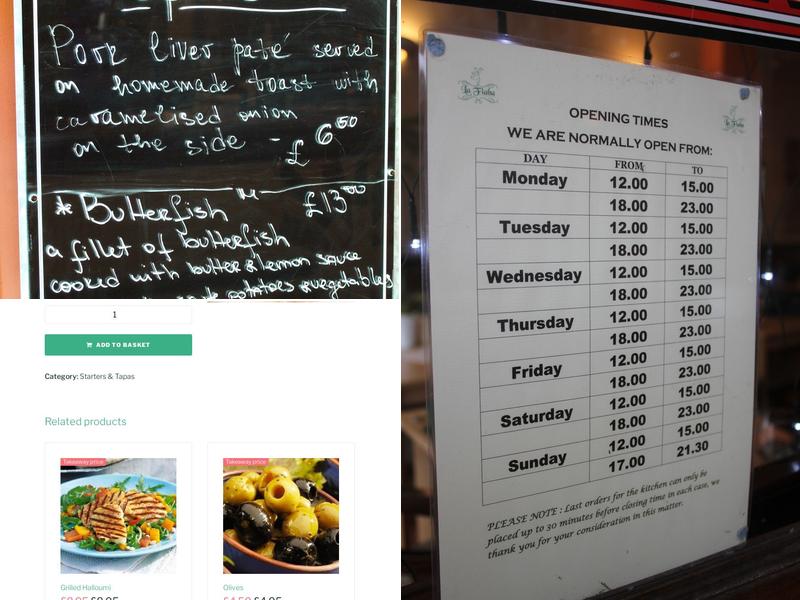 Pork liver paté served
on homemade toast with
caramelised onion
on the side - £6.50
* Butterfish £13.00
a fillet of butterfish
cooked with butter & lemon sauce
potatoes & vegetables
1
ADD TO BASKET
Category: Starters & Tapas
Related products
Takeaway price
Takeaway price
Grilled Halloumi
Olives
La Fruba
La Fruba
OPENING TIMES
WE ARE NORMALLY OPEN FROM:
DAY FROM TO
Monday 12.00 15.00
18.00 23.00
Tuesday 12.00 15.00
18.00 23.00
Wednesday 12.00 15.00
18.00 23.00
Thursday 12.00 15.00
18.00 23.00
Friday 12.00 15.00
18.00 23.00
Saturday 12.00 15.00
18.00 23.00
Sunday 12.00 15.00
17.00 21.30
PLEASE NOTE : Last orders for the kitchen can only be
placed up to 30 minutes before closing time in each case, we
thank you for your consideration in this matter.